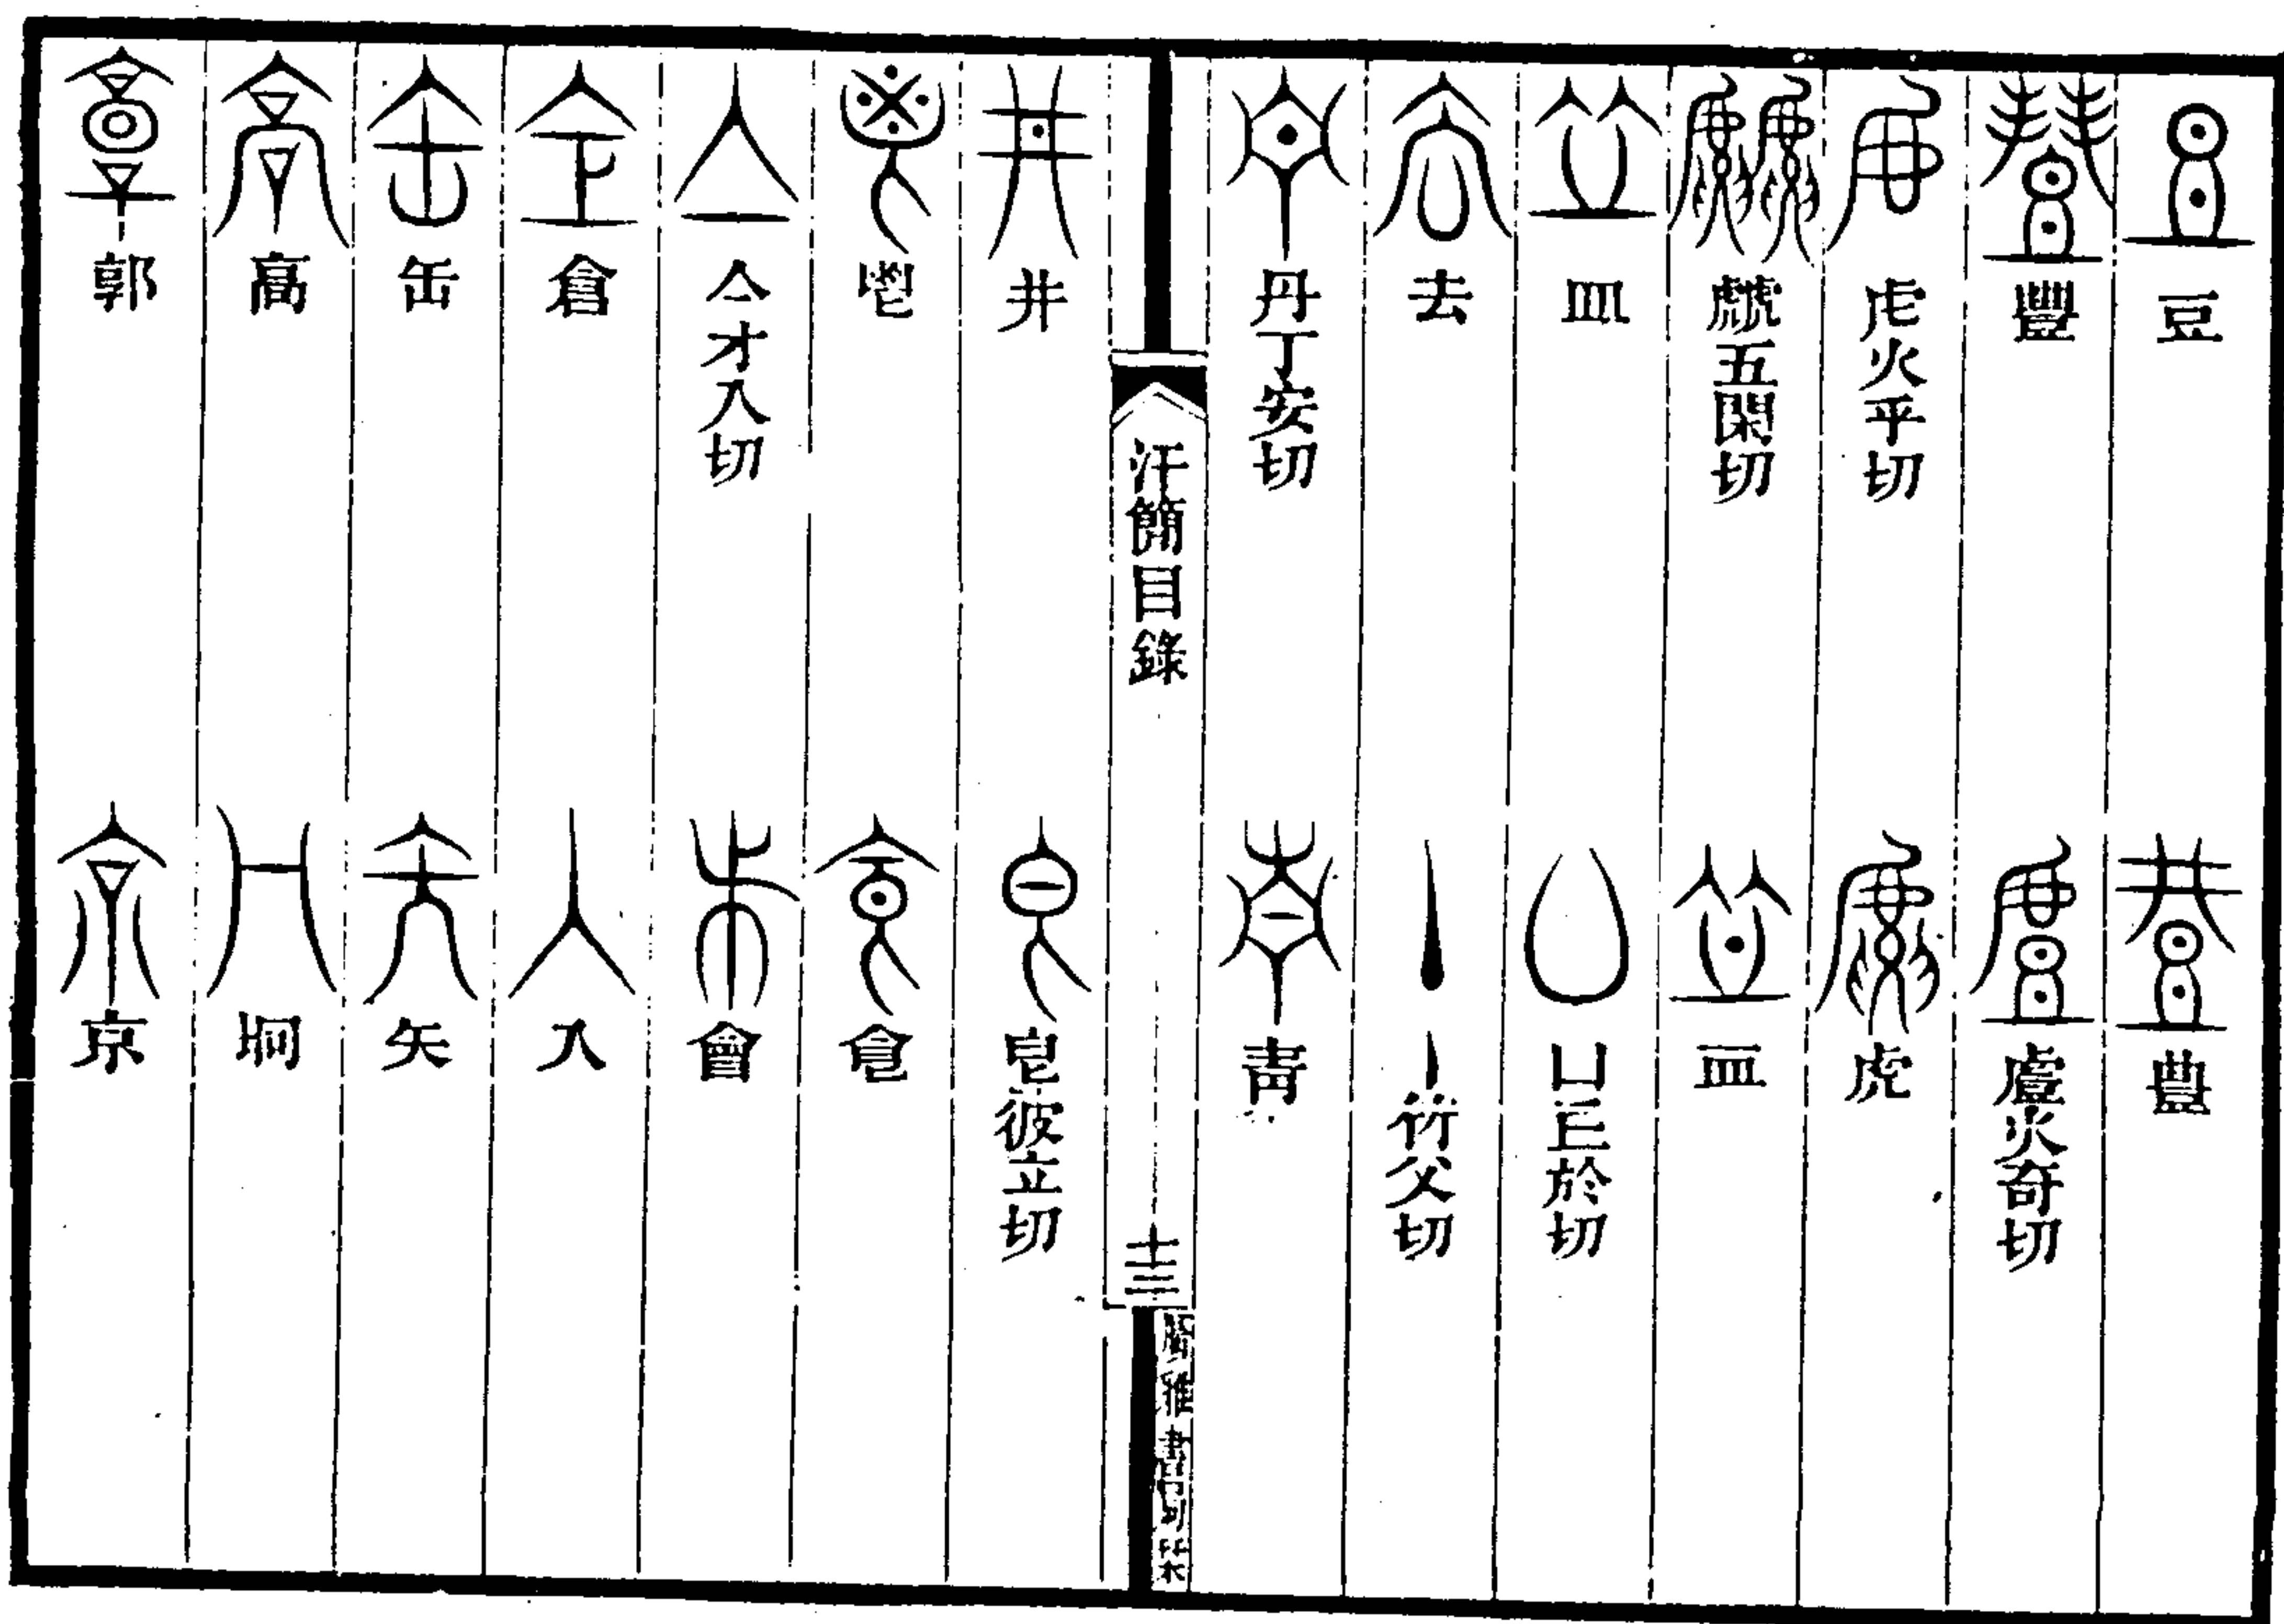 豆 豊
豐 䖒火奇切
虍火乎切 虎
虤五閑切 皿
皿 凵丘於切
去 丶竹父切
丹丁安切 青
汗簡目錄 十三
井 皀彼立切
鬯 食
亼才入切 會
倉 入
缶 矢
高 坰
郭 京